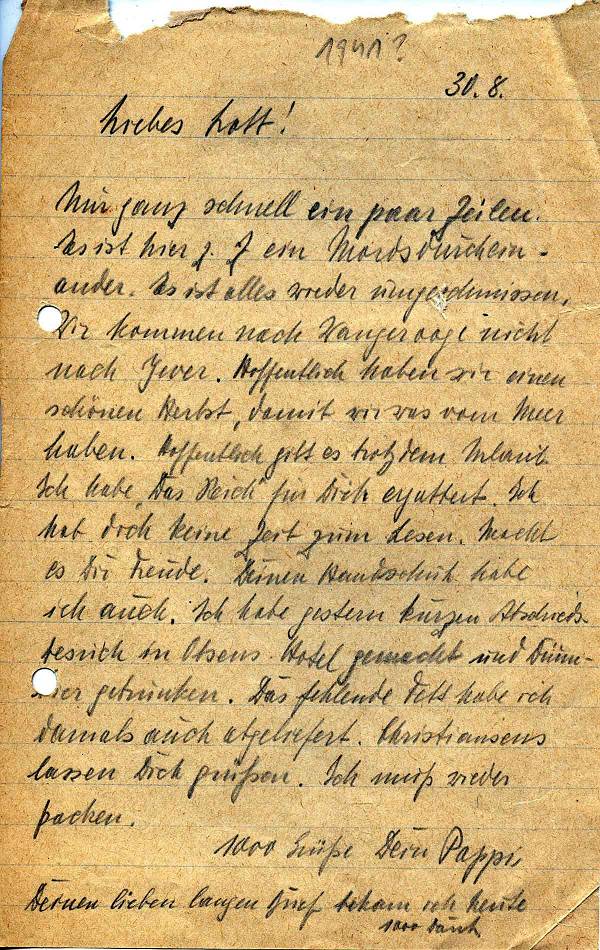 1941?
30.8.
Liebes Lott!
Nur ganz schnell ein paar Zeilen.
Es ist hier z. Z ein Mordsdurchein-
ander. Es ist alles wieder umgeschmissen.
Wir kommen nach Wangerooge nicht
nach Jever. Hoffentlich haben wir einen
schönen Herbst, damit wir was vom Meer
haben. Hoffentlich gibt es trotzdem Urlaub.
Ich habe „Das Reich" für Dich ergattert. Ich
hab doch keine Zeit zum Lesen. Macht
es Dir Freude. Deinen Handschuh habe
ich auch. Ich habe gestern kurzen Abschieds-
besuch in Olsens Hotel gemacht und Dünn-
bier getrunken. Das fehlende Fett habe ich
damals auch abgeliefert. Christiansens
lassen Dich grüßen. Ich muß wieder
packen.
1000 Grüße Dein Pappi
Deinen lieben langen Brief bekam ich heute
1000 Dank